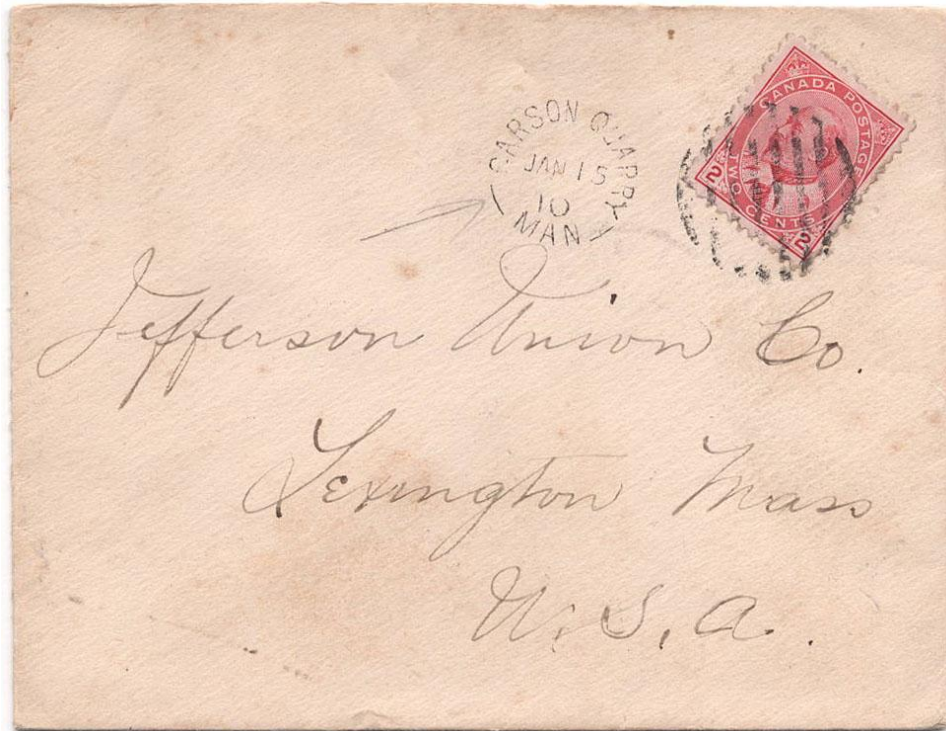 GARSON QUARRY
JAN 15
10
MAN
CANADA POSTAGE
TWO CENTS
2 2
Jefferson Union Co.
Lexington Mass
U.S.A.